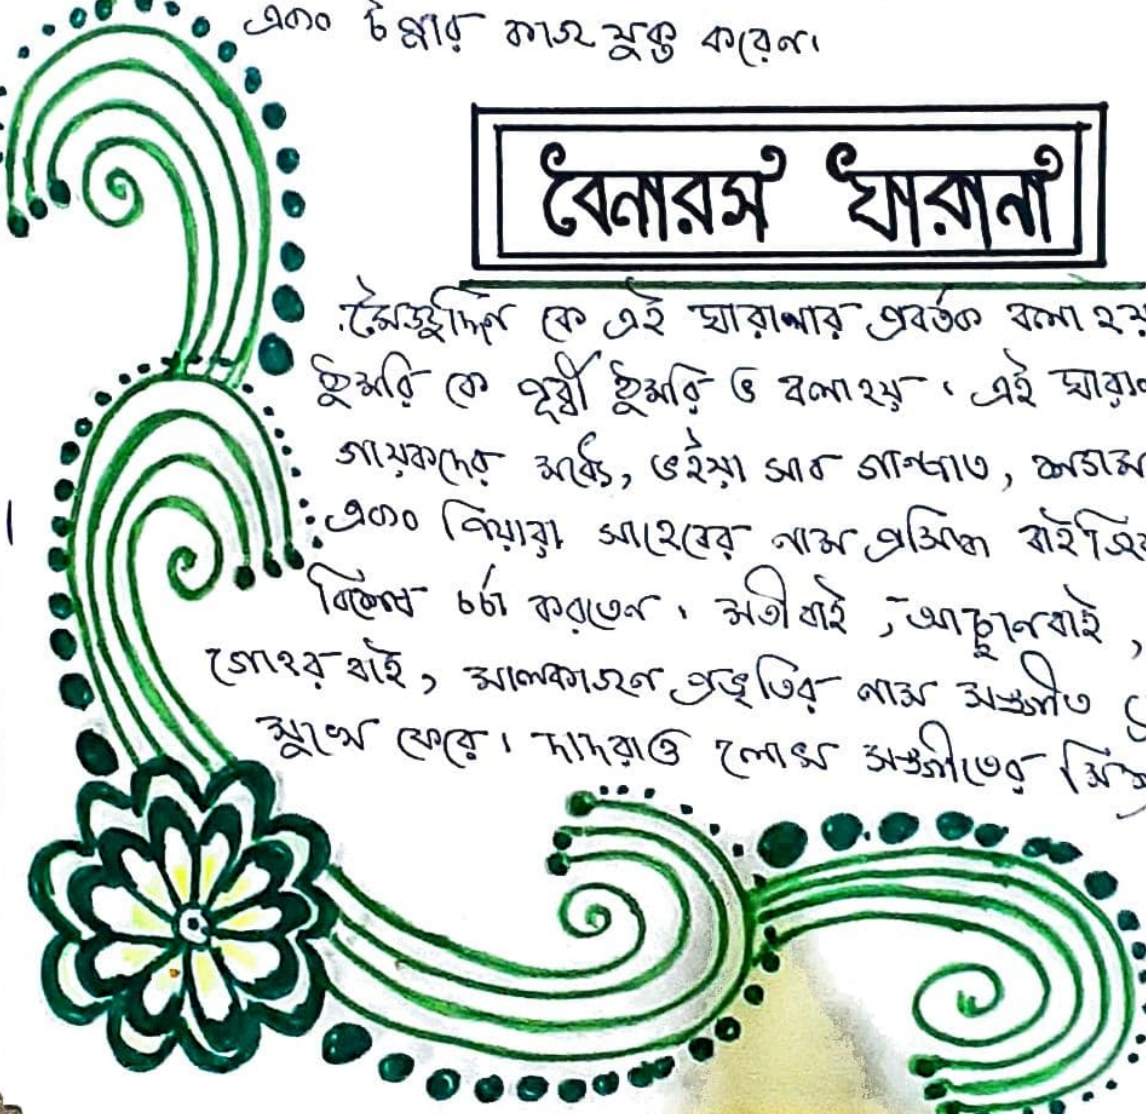 এবং টপ্পার কাজ যুক্ত করেন।
বেনারস ঘারানা
মৈজুদ্দিন কে এই ঘারানার প্রবর্তক বলা হয়
ঠুমরি কে পূর্বী ঠুমরি ও বলা হয়। এই ঘারান
গায়কদের মধ্যে, ভইয়া সাব গানপাত,
এবং পিয়ারা সাহেবের নাম প্রসিদ্ধ বাইজির
বিশেষ চর্চা করতেন। মতীবাই, আচ্ছানবাই,
গোহর বাই, মালকাজান প্রভৃতির নাম সঙ্গীত
মুখে ফেরে। দাদরাও লোক সঙ্গীতের মিশ